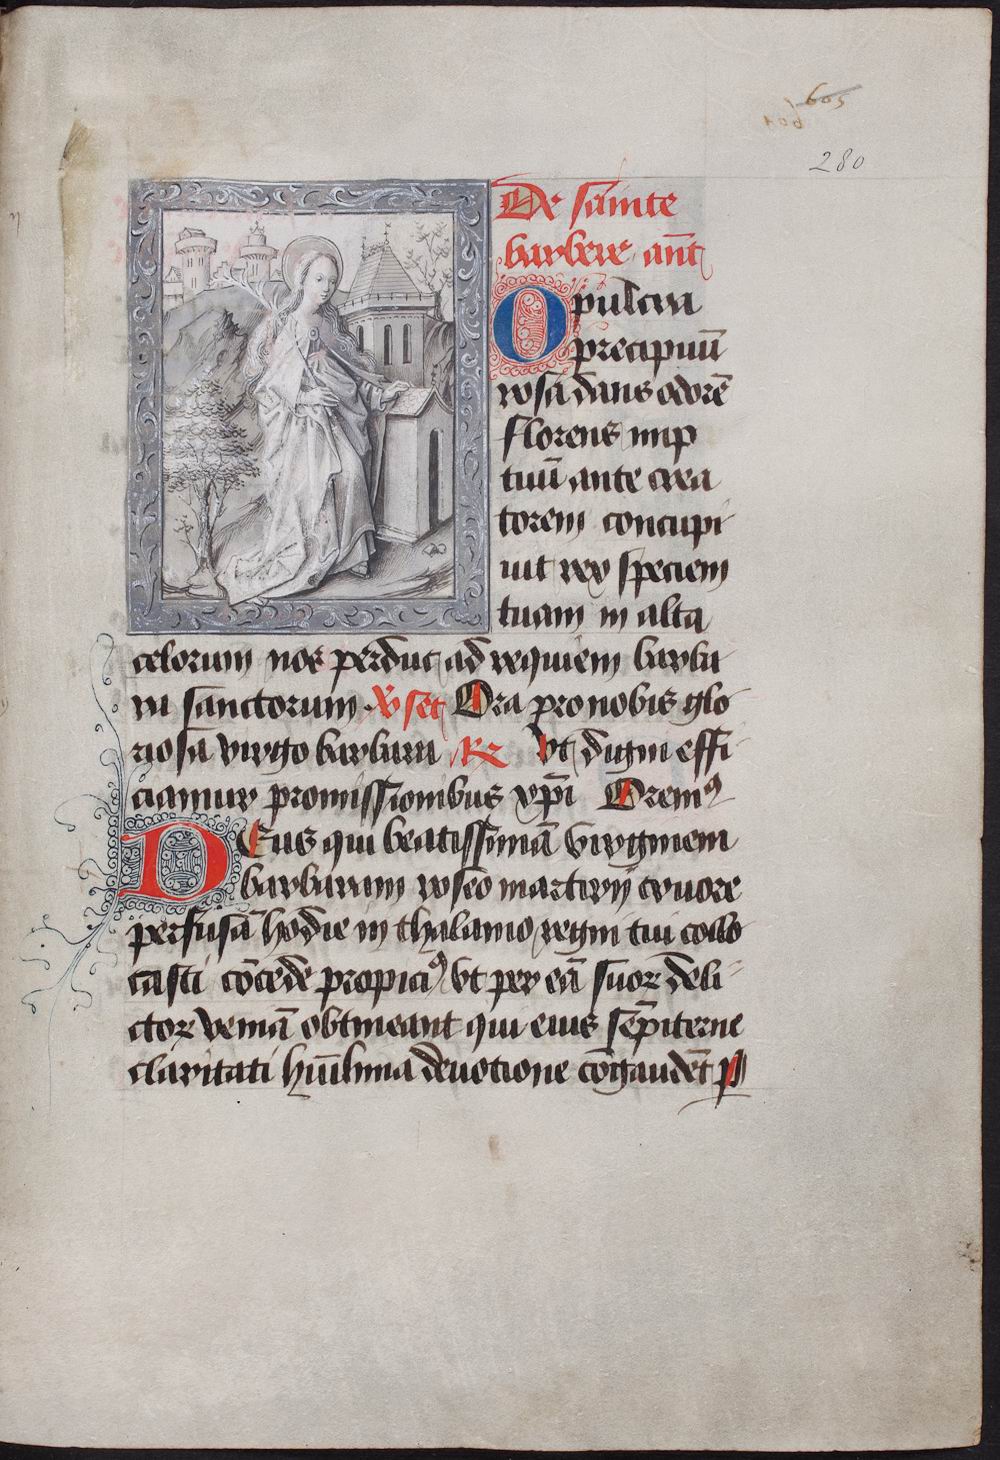 605
604
280
De sainte
barbere ant̄
O pulcra
precipuū
rosa dans odorē
florens imp
tuū ante crea
torem concupi
uit rex speciem
tuam in alta
celorum nos perduc ad requiem barba
ra sanctorum v̄set Ora pro nobis glo
riosa virgo barbara R Vt digni effi
ciamur promissionibus xp̄i Oremꝰ
DEus qui beatissimā virginem
barbaram roseo martirij cruore
perfusā hodie in thalamo regni tui collo
casti cōcede propiciꝰ vt per eā suoꝝ deli
ctoꝝ veniā obtineant qui eius sēpiterne
claritati humilima deuotione cōgaudēt p